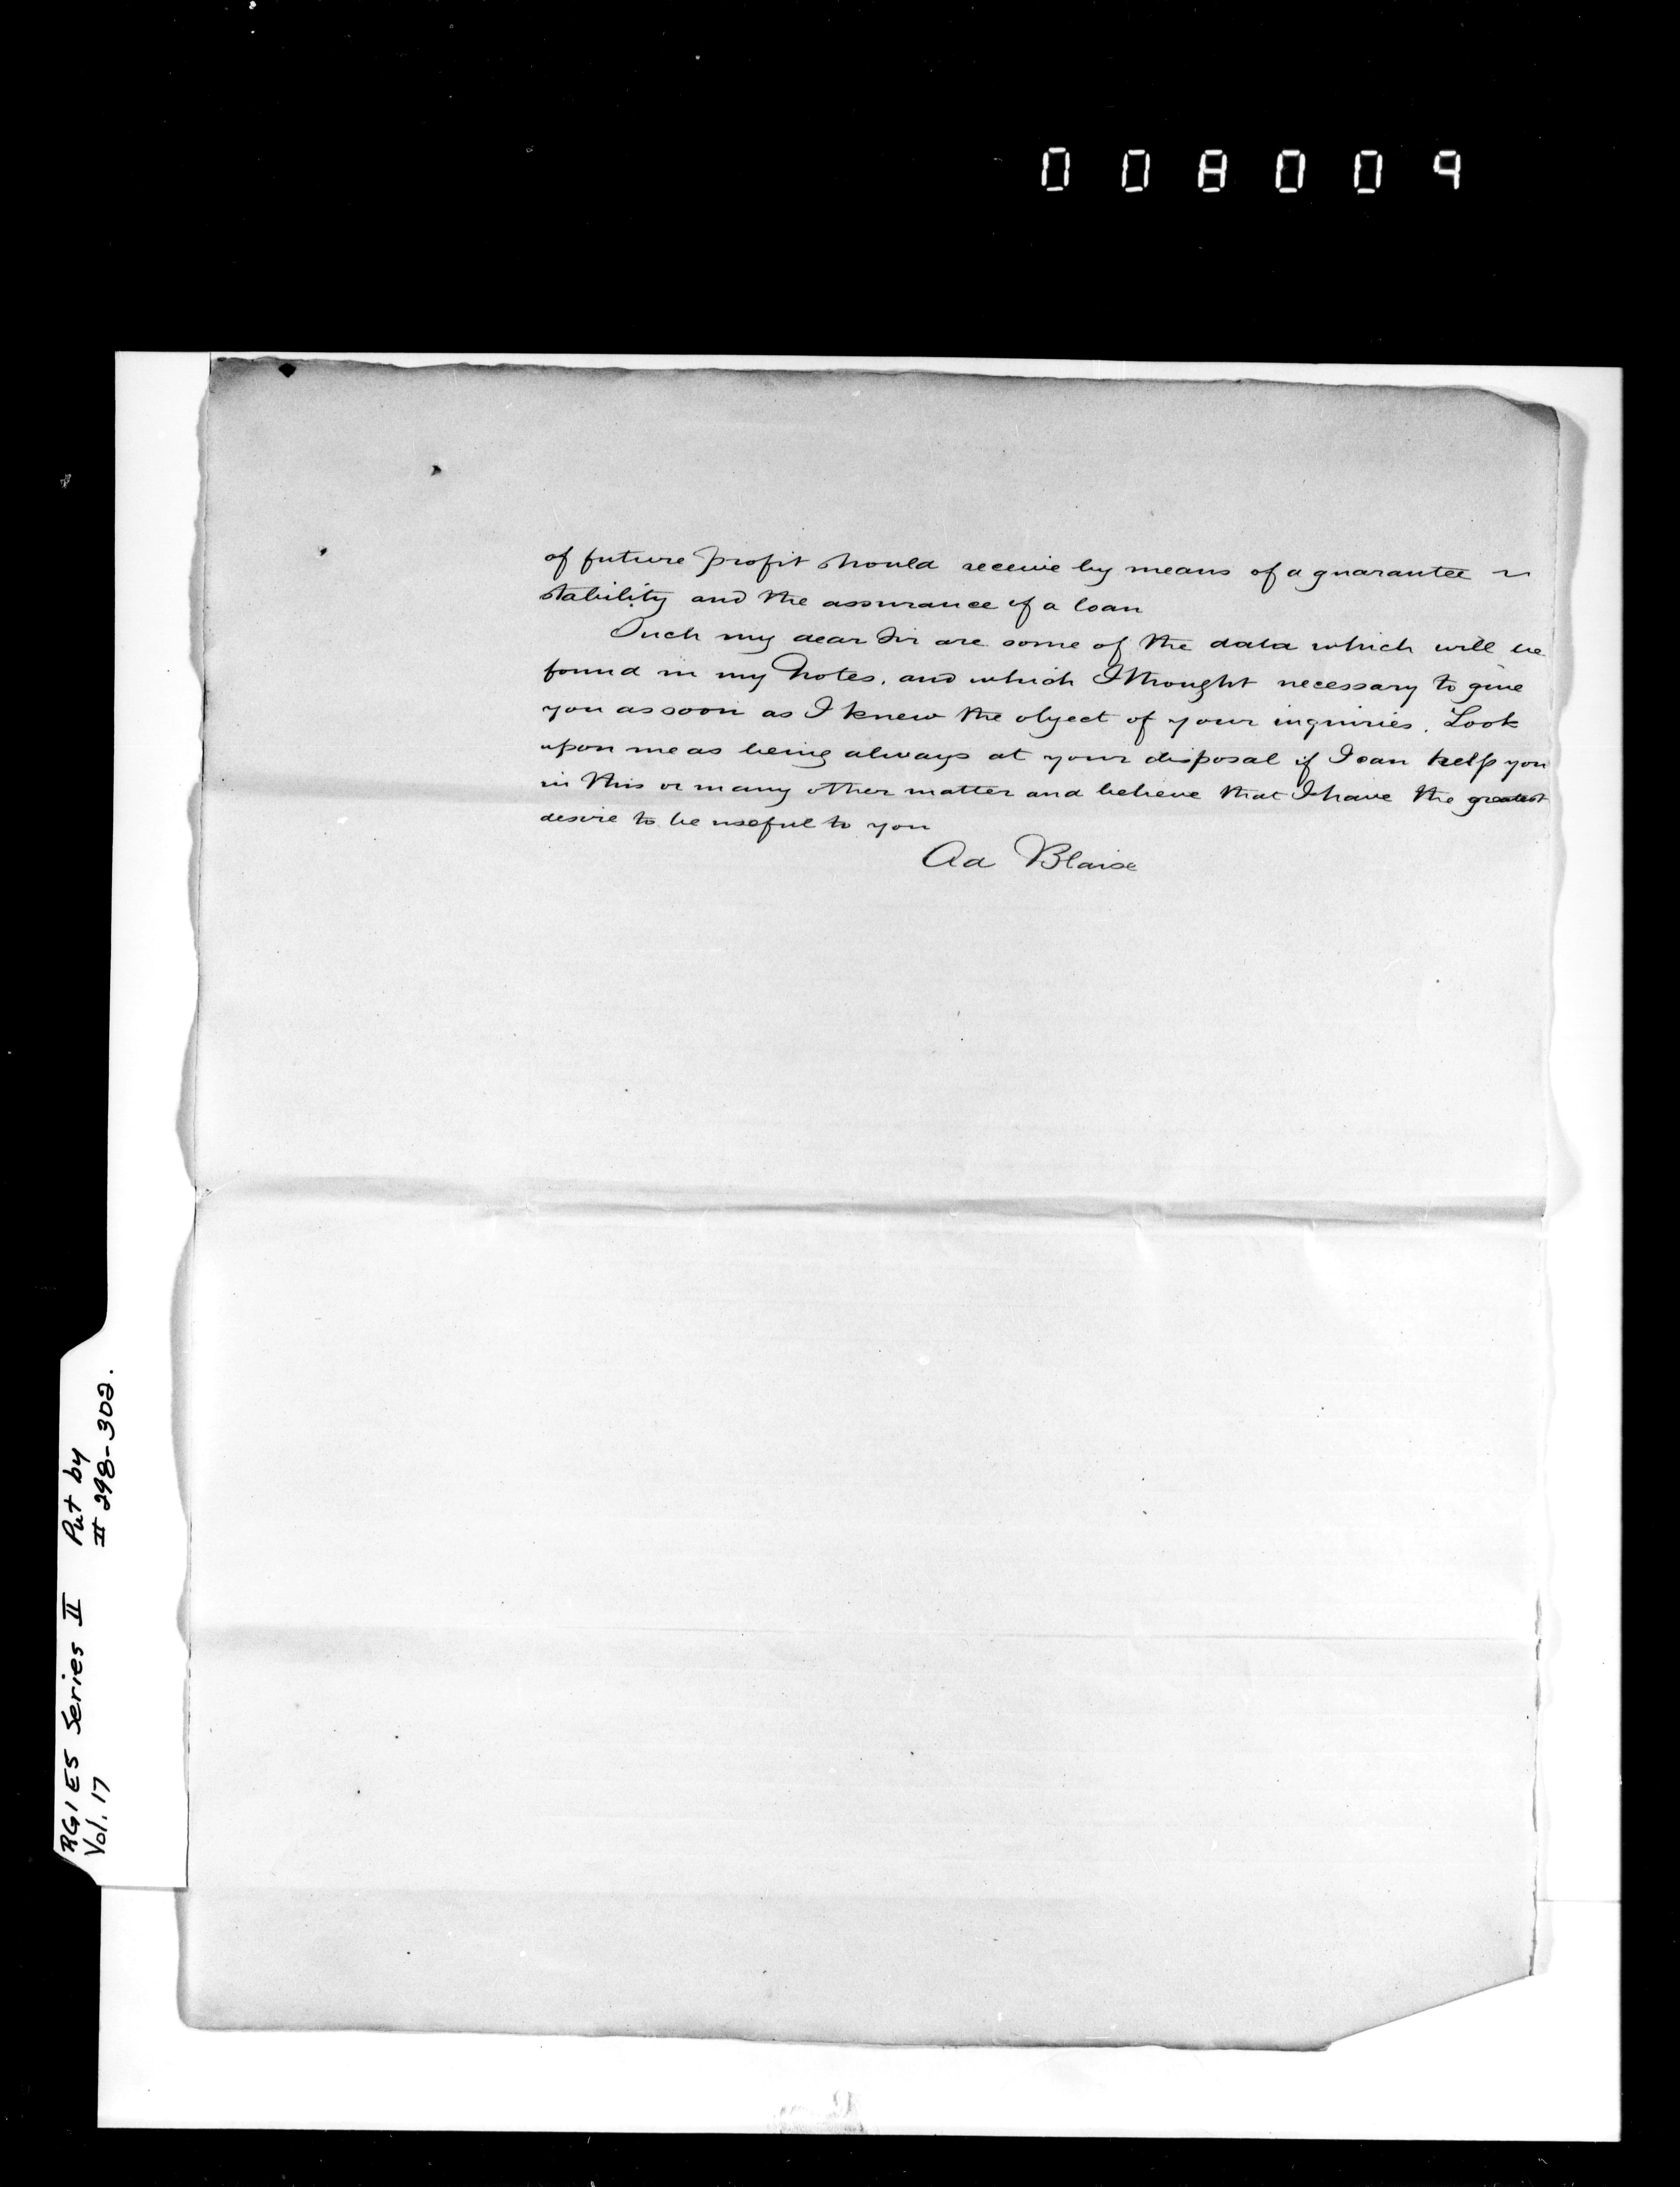 008009
of future profit should receive by means of a guarantee ~
stability and the assurance of a loan
Such my dear Sir are some of the data which will be
found in my notes, and which I thought necessary to give
you as soon as I knew the object of your inquiries. Look
upon me as being always at your disposal if I can help you
in this or in any other matter and believe that I have the greatest
desire to be useful to you
Ad Blaise
RG1 E5 Series II Put by
Vol. 17 # 298-302.